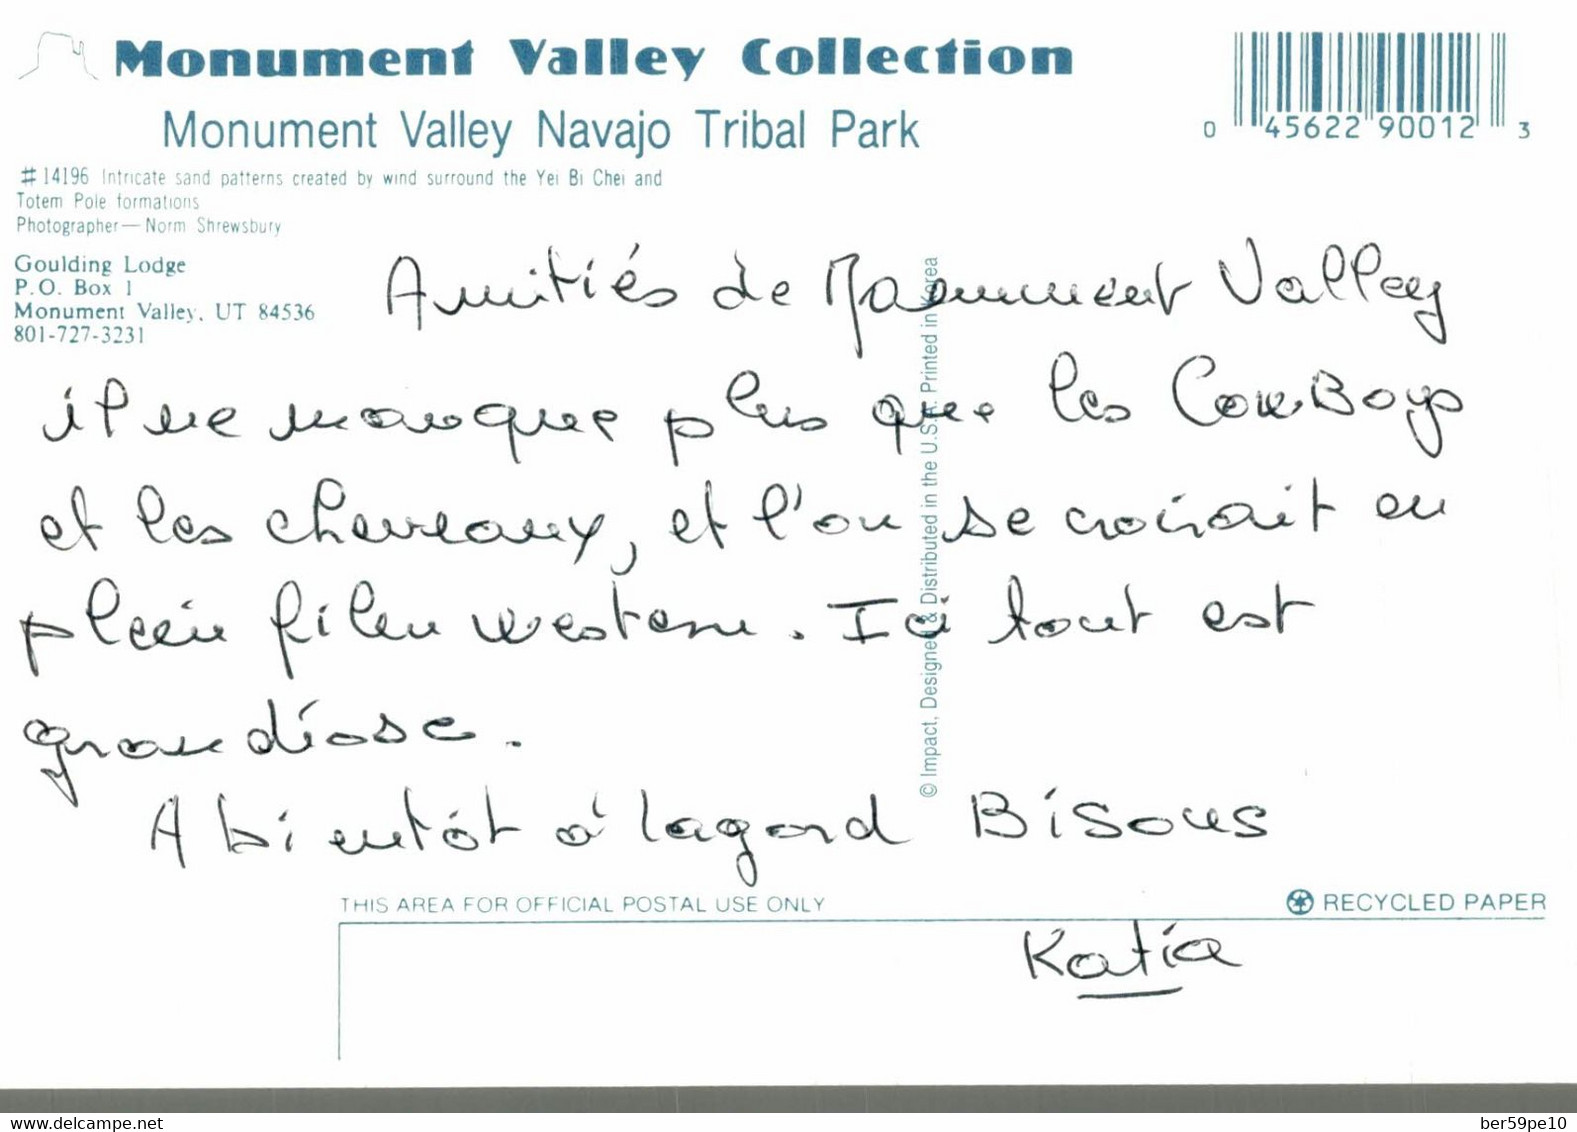 Monument Valley Collection
Monument Valley Navajo Tribal Park
0 45622 90012 3
#14196 Intricate sand patterns created by wind surround the Yei Bi Chei and
Totem Pole formations
Photographer—Norm Shrewsbury
Goulding Lodge
P.O. Box 1
Monument Valley, UT 84536
801-727-3231
Amitiés de Monument Valley
il ne manque plus que les CowBoys
et les chevaux, et l'on se croirait en
plein film western. Ici tout est
grandiose.
A bientôt à lagord Bisous
Katia
© Impact, Designed & Distributed in the U.S.A. Printed in Korea
THIS AREA FOR OFFICIAL POSTAL USE ONLY
RECYCLED PAPER
www.delcampe.net
ber59pe10